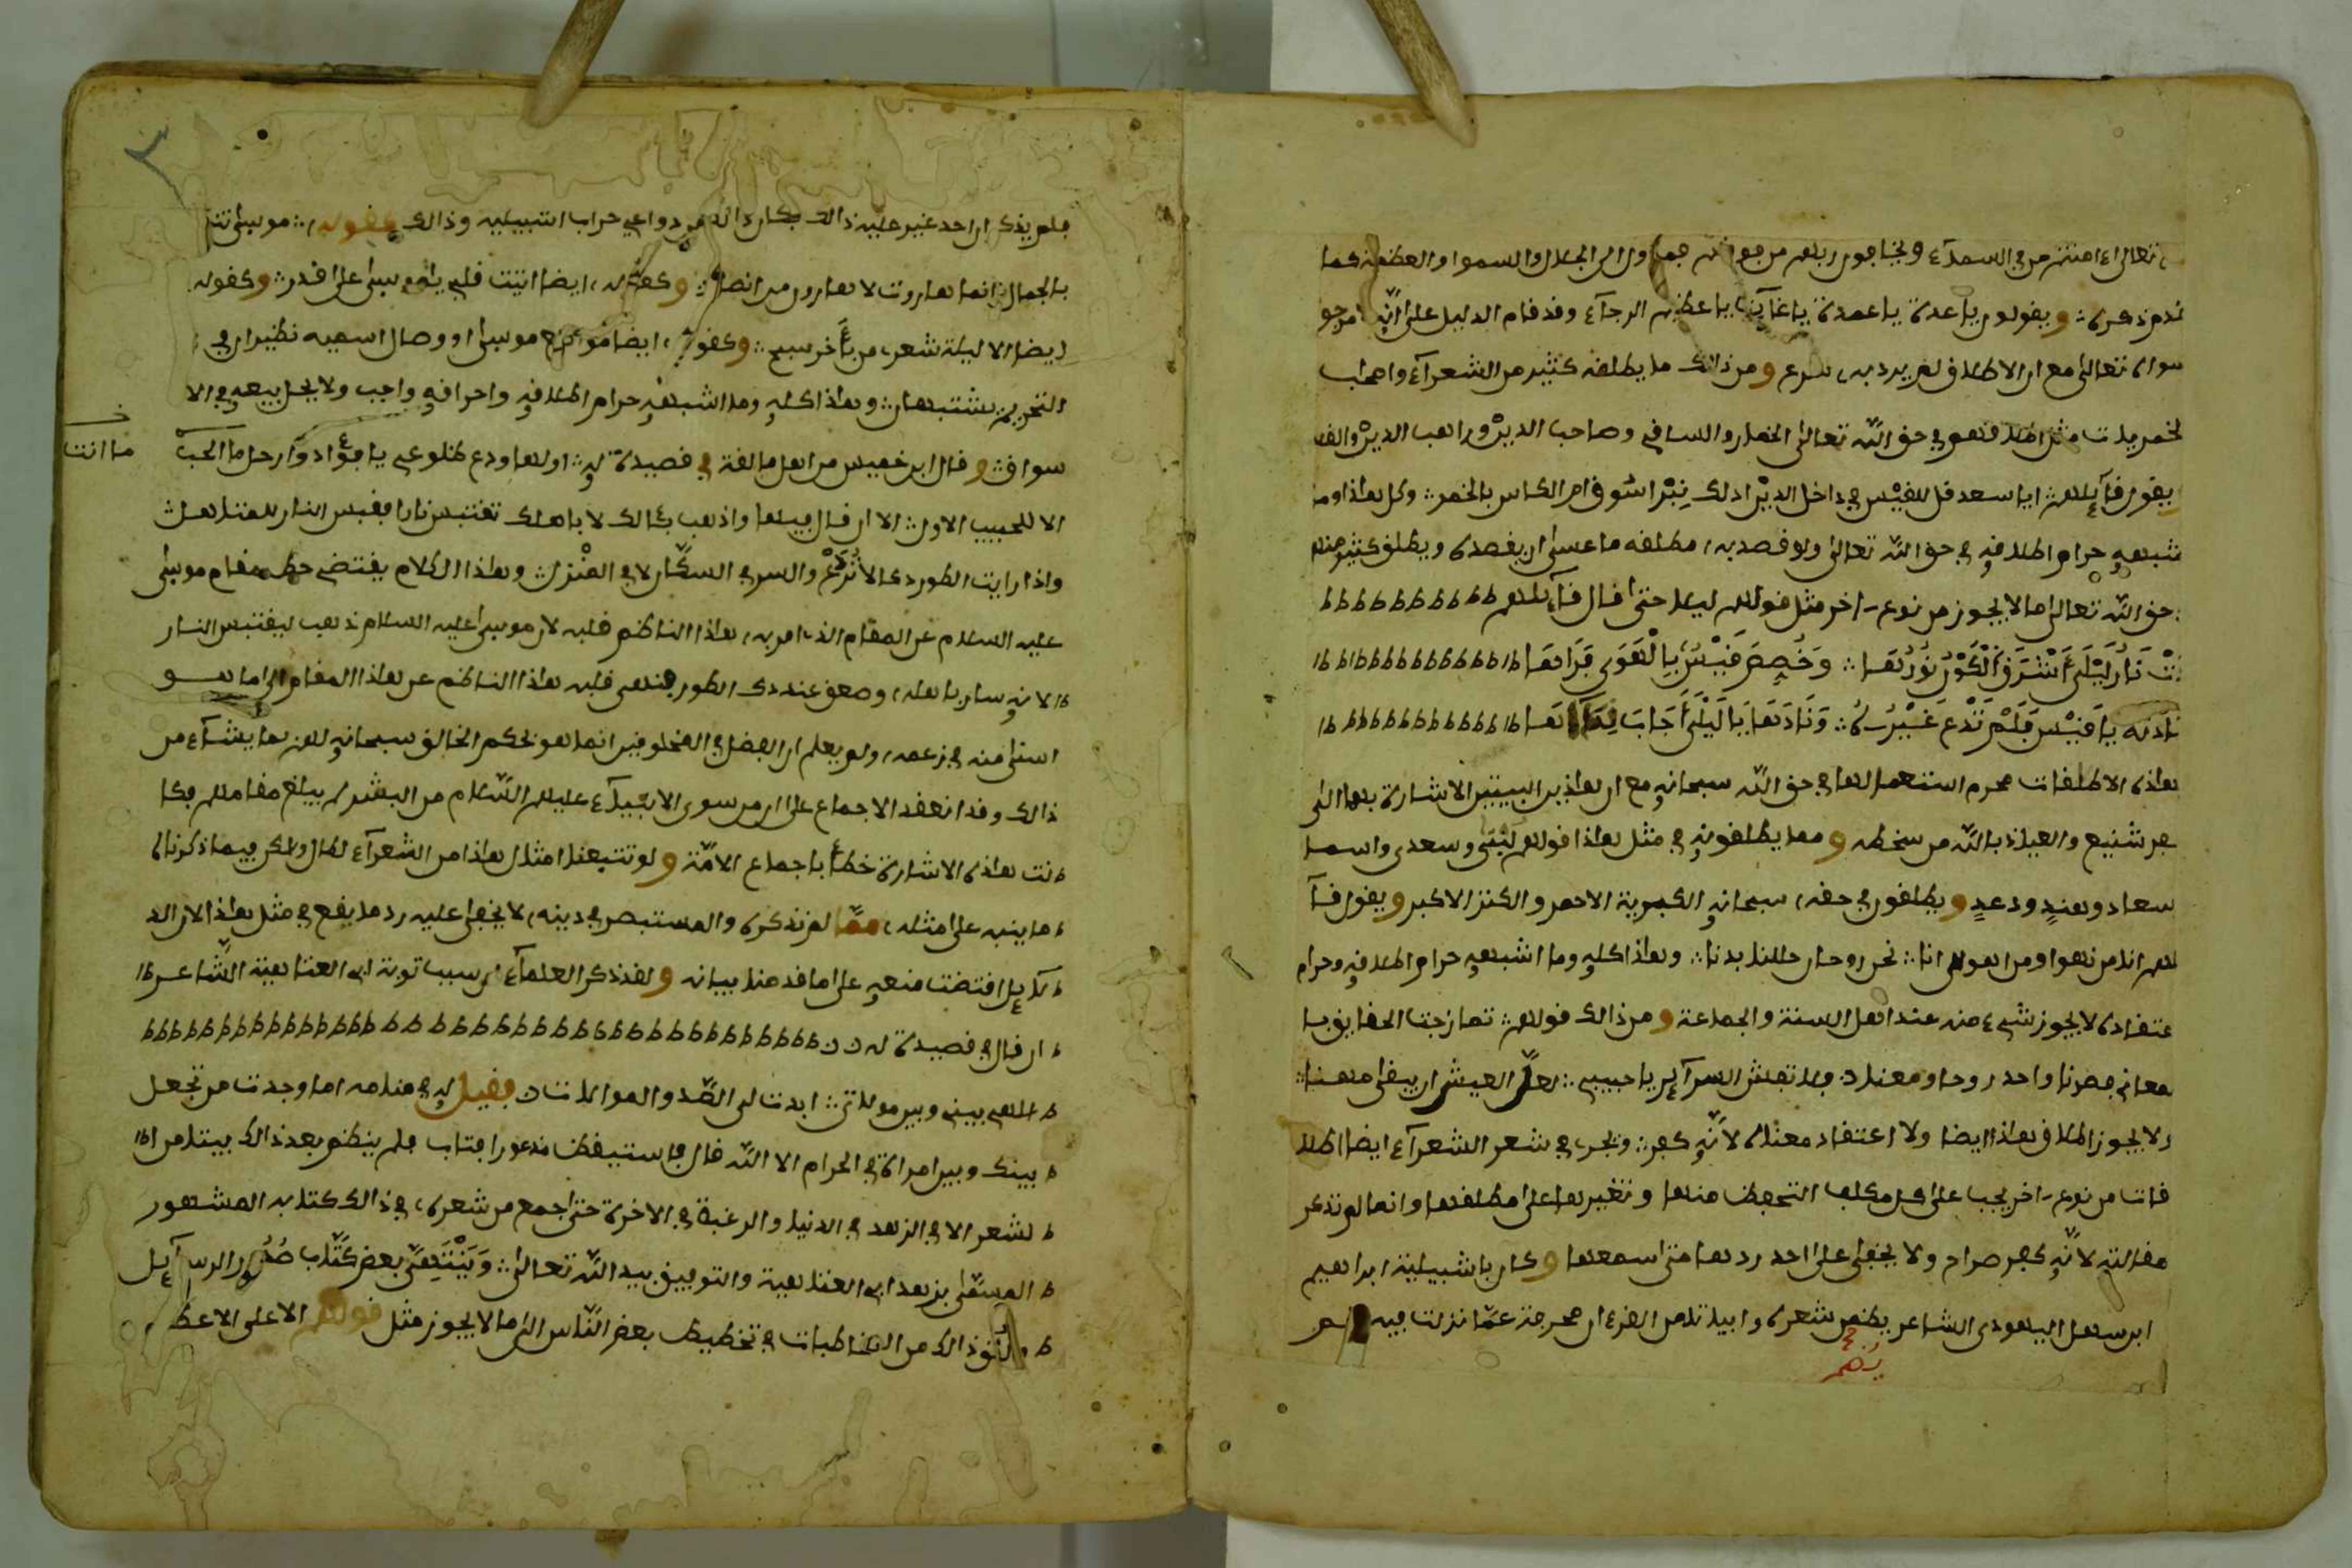 تعالى ءامنتم من في السماء ويناجون ربهم من جهة الى الجلال والسمو والعظمة كما
تقدم ذكره ويقولون ياعدة ياعمدة ياغاية ياعظيم الرجاء وقد قام الدليل على انه مرجو
سواه تعالى مع ان الاطلاق لم يرد به شرع ومن ذلك ما يطلقه كثير من الشعراء واصحاب
الخمريات مثل اطلاقهم في حق الله تعالى الخمار والساقي وصاحب الدير وراهب الدير والقس
يقول قآيلهم ايا سعد قل للقيس في داخل الدير اذلك نبراس وفام الكاس بالخمر وكل هذا وما
شبهه حرام اطلافه في حق الله تعالى ولو قصد به مطلقه ما عسى ان يقصده ويطلق كثير منهم
حق الله تعالى ما لا يجوز من نوع اخر مثل قولهم ليلى حتى قال قآيلهم
نار ليلى اشرق الكون نورها وخصص قيس بالهوى فرآها
نادته يا قيس فلم تدع غيره ونادها يا ليلى اجاب
هذه الاطلقات محرم استعمالها في حق الله سبحانه مع ان هذين البيتين الاشارة بهما الى
كفر شنيع والعياذ بالله من سخطه ومما يطلقونه في مثل هذا قولهم لبنى وسعدى واسما
سعاد وهند ودعد ويطلقون في حقه سبحانه الكبرية الاحمر والكنز الاكبر ويقول قآ
يلهم انا من نهوا ومن اهوى انا نحن روحان حللنا بدنا وهذا كله وما اشبهه حرام اطلافه وحرام
عتقاده لا يجوز شيء منه عند اهل السنة والجماعة ومن ذلك قولهم تمازجت الحقايق با
لمعاني فصرنا واحد روحا ومعنا فلا تفش السرآير يا حبيبي لعل العيش ان يبقى مهنا
ولا يجوز اطلاق هذا ايضا ولا اعتقاد معناه لانه كفر ونجد في شعر الشعراء ايضا اطلا
قات من نوع اخر يجب على كل مكلف التحفظ منها وتغييرها على مطلقها وانما لم نذكر
مقالته لانه كفر صراح ولا يخفى على احد ردها متى اسمعها وكان باشبيلية ابراهيم
ابن سهل اليهودي الشاعر يضمن شعره وابياته من القرءان محرجة عما نزلت فيه
فلم يذكر ان احد غير عليه ذالك فكان ذالك من دواعي خراب اشبيلية وذالك كقوله موسى تنبا
بالجمال وانما هاروت لا هارون من انصاره وكقوله ايضا اتيت قلبي يا موسى على قدر وكقوله
ايضا الا ليلة شعر من باخر سبح وكقوله ايضا موسى او وصال اسميه نظيران في
التحريم يشتبهان وهذا كله وما اشبهه حرام اطلافه واحراقه واجب ولا يحل بيعه في الا
سواق وقال ابن خميس من اهل مالقة في قصيدة له اولها ودع ضلوعي يا فؤاد وارحل ما الحب
ما انت
الا للحبيب الاول الا ان قال فيها واذهب بكالك لا باهلك تقتبس نارا فقبس النار للمتاهل
واذا رايت الطور دك لا ترع والسر في السكان لا في المنزل وهذا الكلام يقتضي حط مقام موسى
عليه السلام عن المقام الذي امر به هذا الناظم قلبه لان موسى عليه السلام ذهب ليقتبس النار
لانه سار باهله وصعق عند دك الطور فنهى قلبه هذا الناظم عن هذا المقام الى ما هو
اسنى منه في زعمه ولم يعلم ان الفضل في المخلوقين انما هو بحكم الخالق سبحانه لمن بما يشاء من
ذالك وقد انعقد الاجماع على ان من سوى الانبياء عليهم السلام من البشر لم يبلغ مقامهم فكا
نت هذه الاشارة خطأ باجماع الامة ولو تتبعنا امثال هذا من الشعراء لطال ولكن فيما ذكرناه
ما ينبه على مثله مما لم نذكره والمستبصر في دينه لا يخفى عليه رد ما يقع في مثل هذا لان الد
لآيل اقتضت منعه على ما قدمنا بيانه ولقد ذكر العلماء ان سبب توبة ابي العتاهية الشاعر
ان قال في قصيدة له
اللهم بيني وبين مولاتي ابدت لي الصد والموالات فقيل له في منامه اما وجدت من تجعل
بينك وبين امراة في الحرام الا الله قال فاستيقظ مذعورا فتاب فلم ينظم بعد ذالك بيتا من ا
لشعر الا في الزهد في الدنيا والرغبة في الاخرة حتى اجمع من شعره في ذالك كتابه المشهور
المسمى بزهد ابي العتاهية والتوفيق بيد الله تعالى وينتهى بعض كتاب صدور الرسآيل
ولنحو ذالك من المخاطبات في تخطيط بعض الناس الى ما لا يجوز مثل قولهم الاعلى الاعظ